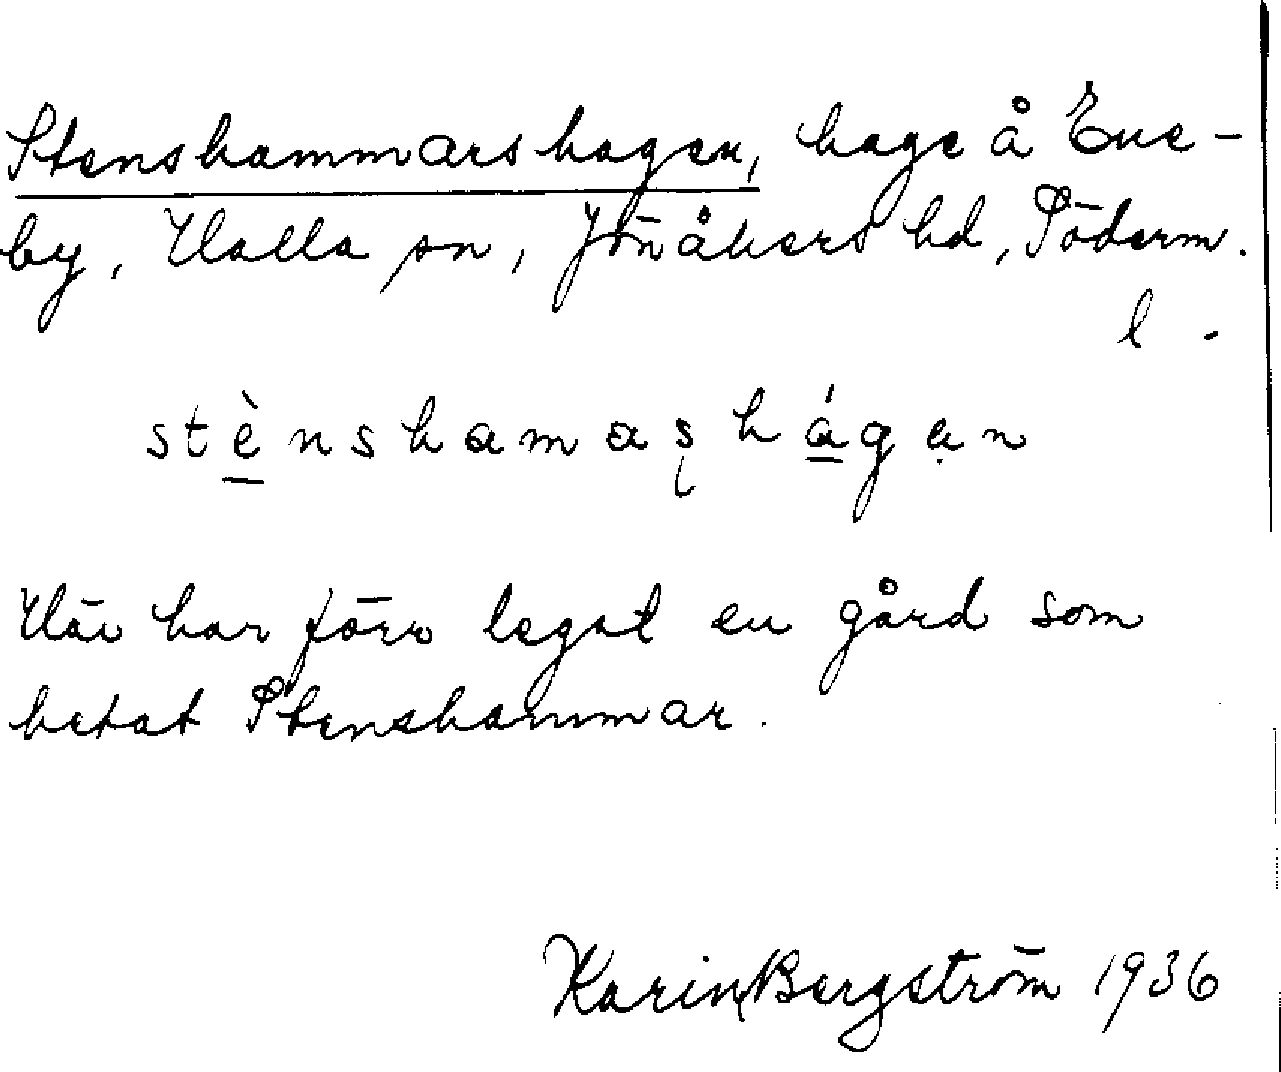 Stenshammarshagen, hage å Ene-
by, Halla sn, Jönåkers hd, Söderm.
l.
stè̲nshamaʂhá̲gạn
Här har förr legat en gård som
hetat Stenshammar.
Karin Bergström 1936